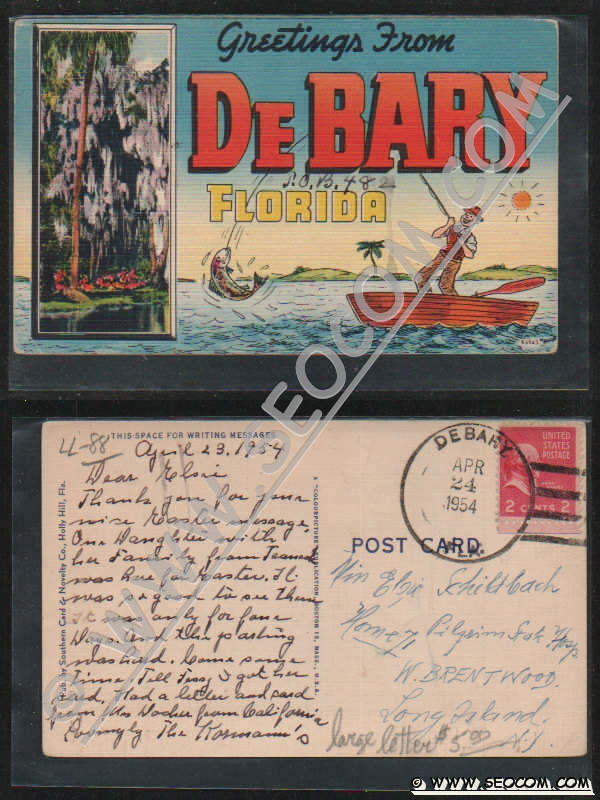 Greetings From
DE BARY
P.O.B. 482
FLORIDA
© WWW.SEOCOM.COM
4-88
THIS SPACE FOR WRITING MESSAGES
April 23, 1954
Dear Elsie
Thank you for your
nice Easter message,
One Daughter with
her Family from
was here for Easter. It
was so good to see them
It was only for four
Days. and the parting
was hard. Come some
time. Tell I got her
card. Had a letter and card
from from California
The Hormann's
Pub. by Southern Card & Novelty Co., Holly Hill, Fla.
A "COLOURPICTURE" PUBLICATION, BOSTON 15, MASS., U.S.A.
DE BARY
APR
24
1954
FLA.
UNITED
STATES
POSTAGE
2 CENTS 2
POST CARD
Elsie Schildbach
Home Pilgrim State Hosp
W. BRENTWOOD.
Long Island.
N.Y.
large letter $5.00
© WWW.SEOCOM.COM